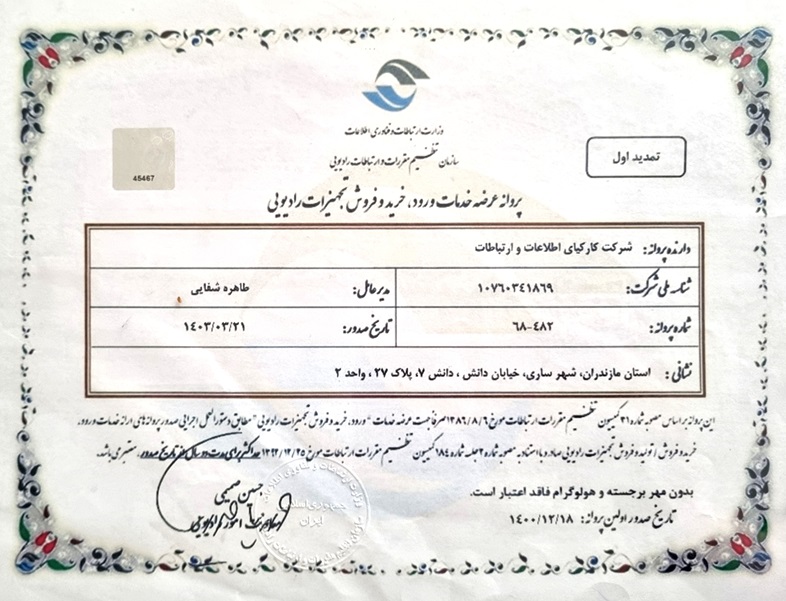 وزارت ارتباطات و فناوری اطلاعات
سازمان تنظیم مقررات و ارتباطات رادیویی
تمدید اول
45467
پروانه عرضه خدمات ورود، خرید و فروش تجهیزات رادیویی
دارنده پروانه: شرکت کارکیای اطلاعات و ارتباطات
شناسه ملی شرکت: ۱۰۷۶۰۳۴۱۸۶۹ مدیرعامل: طاهره شفایی
شماره پروانه: ۶۸-۴۸۲ تاریخ صدور: ۱۴۰۳/۰۳/۲۱
نشانی: استان مازندران، شهر ساری، خیابان دانش ، دانش ۷، پلاک ۲۷ ، واحد ۲
این پروانه بر اساس مصوبه شماره ۳۱ کمیسیون تنظیم مقررات ارتباطات مورخ ۱۳۸۶/۸/۶ صرفا جهت عرضه خدمات "ورود، خرید و فروش تجهیزات رادیویی" مطابق دستورالعمل اجرایی صدور پروانه‌های ارائه خدمات ورود،
خرید و فروش / تولید و فروش تجهیزات رادیویی صادر و با استناد به مصوبه شماره ۲ جلسه شماره ۱۸۴ کمیسیون تنظیم مقررات ارتباطات مورخ ۱۳۹۳/۱۲/۲۵ حداکثر برای مدت دو سال از تاریخ صدور معتبر می‌باشد.
بدون مهر برجسته و هولوگرام فاقد اعتبار است.
تاریخ صدور اولین پروانه: ۱۴۰۰/۱۲/۱۸
حسین صمیمی
جمهوری اسلامی
ایران